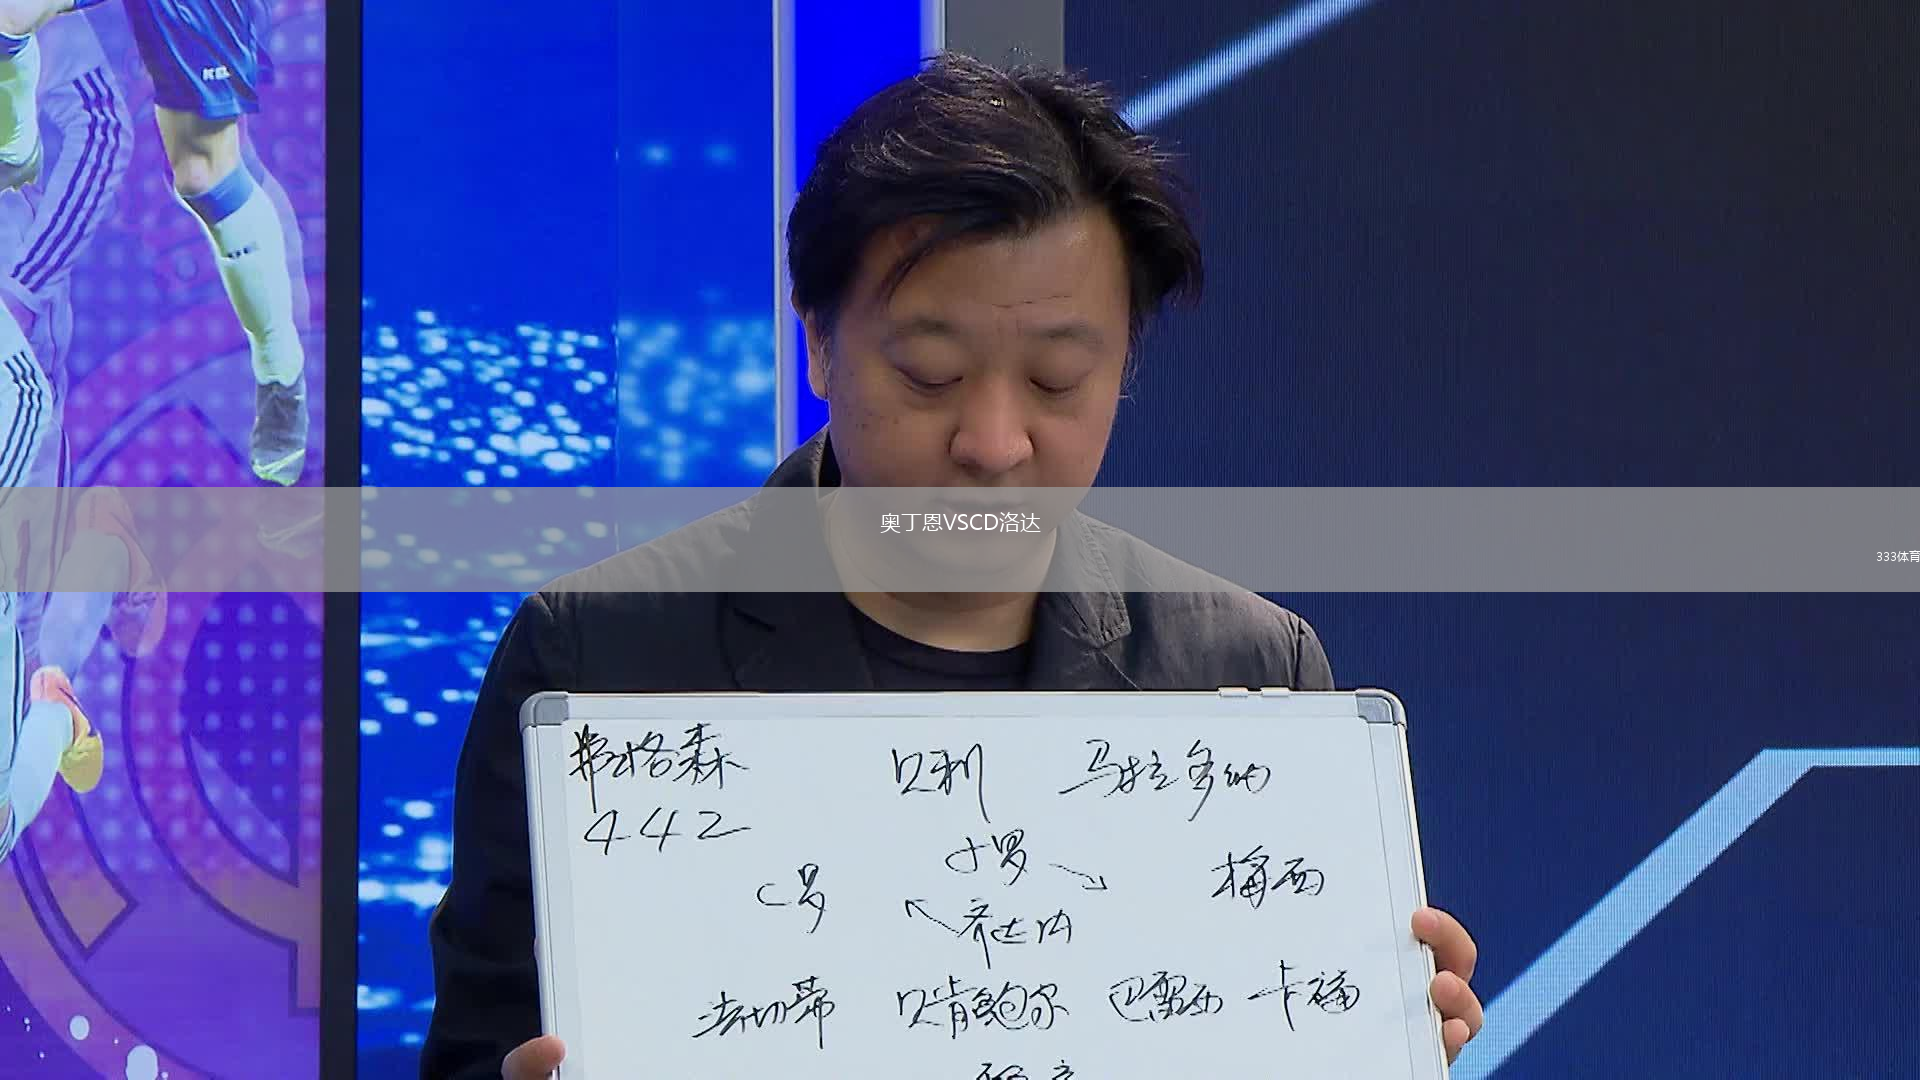 奥丁恩VSCD洛达
333体育
弗格森 贝利 马拉多纳
442
小罗
C罗 梅西
齐达内
法切蒂 贝肯鲍尔 巴雷西 卡福